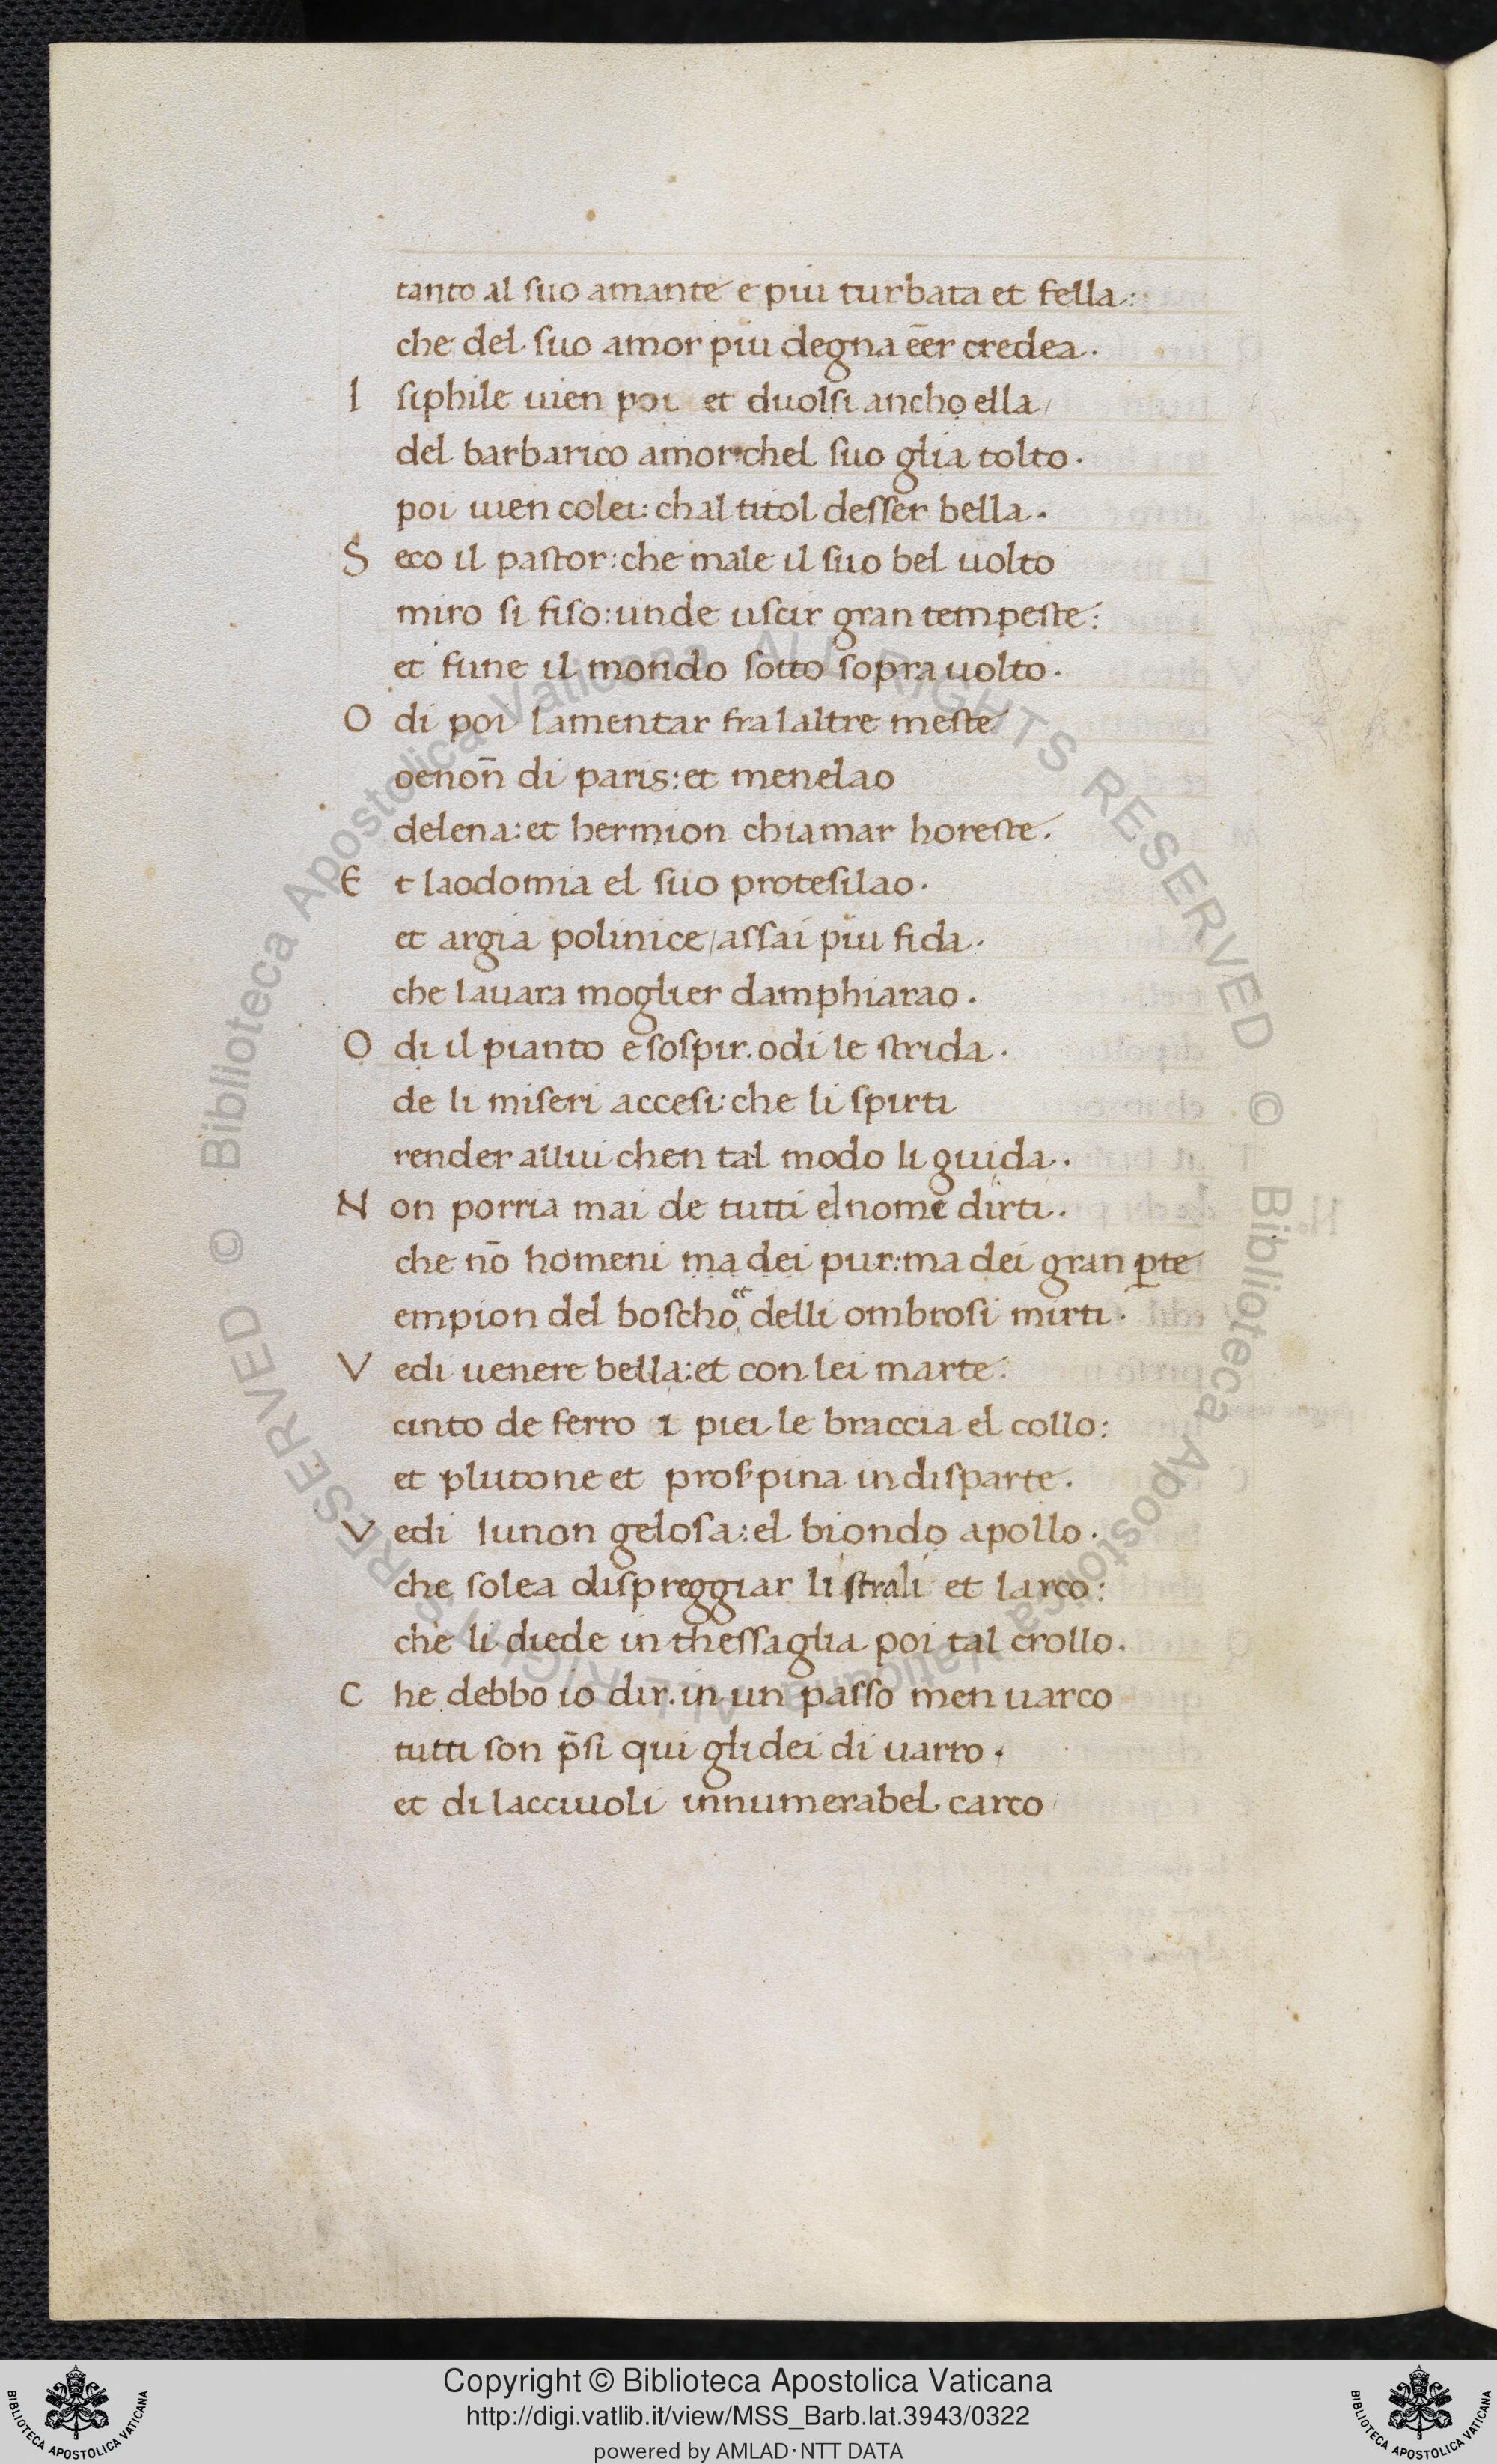 tanto al suo amante e piu turbata et fella:
che del suo amor piu degna eēr credea.
I siphile uien poi et duolsi ancho ella/
del barbarico amor chel suo glia tolto.
poi uien colei: chal titol desser bella.
S eco il pastor: che male il suo bel uolto
miro si fiso: unde uscir gran tempeste:
et fune il mondo sotto sopra uolto.
O di poi lamentar fra laltre meste
oenoñ di paris: et menelao
delena: et hermion chiamar horeste.
E t laodomia el suo protesilao.
et argia polinice/assai piu fida.
che lauara moglier damphiarao.
O di il pianto e sospir. odi le strida.
de li miseri accesi: che li spirti
render allui chen tal modo li guida.
N on porria mai de tutti el nome dirti.
che nō homeni ma dei pur: ma dei gran ꝑte
empion del boscho et delli ombrosi mirti.
V edi uenere bella: et con lei marte.
cinto de ferro i piei le braccia el collo:
et plutone et prosṗina in disparte.
V edi Iunon gelosa: el biondo apollo.
che solea dispreggiar li strali et larco:
che li diede in thessaglia poi tal crollo.
C he debbo io dir. in un passo men uarco
tutti son p̄si qui gli dei di uarro.
et di lacciuoli innumerabel carco
Copyright © Biblioteca Apostolica Vaticana
http://digi.vatlib.it/view/MSS_Barb.lat.3943/0322
powered by AMLAD·NTT DATA
BIBLIOTECA APOSTOLICA VATICANA
BIBLIOTECA APOSTOLICA VATICANA
© Biblioteca Apostolica Vaticana ALL RIGHTS RESERVED © Biblioteca Apostolica Vaticana ALL RIGHTS RESERVED